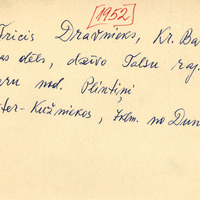 [1952]
Fricis Dravnieks, Kr. Ba
as dēls, dzīvo Talsu raj.
aru nod. Plintiņi
ter-Kužniekos, zem. no Dun